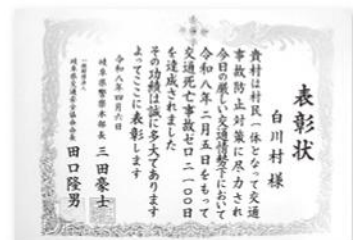 表彰状
白川村様
貴村は村民一体となって交通
事故防止対策に尽力され
今日の厳しい交通情勢下において
令和八年二月五日をもって
交通死亡事故ゼロ二一〇〇日
を達成されました
その功績は誠に多大であります
よってここに表彰します
令和八年四月六日
岐阜県警察本部長 三田豪士
一般財団法人
岐阜県交通安全協会会長 田口隆男